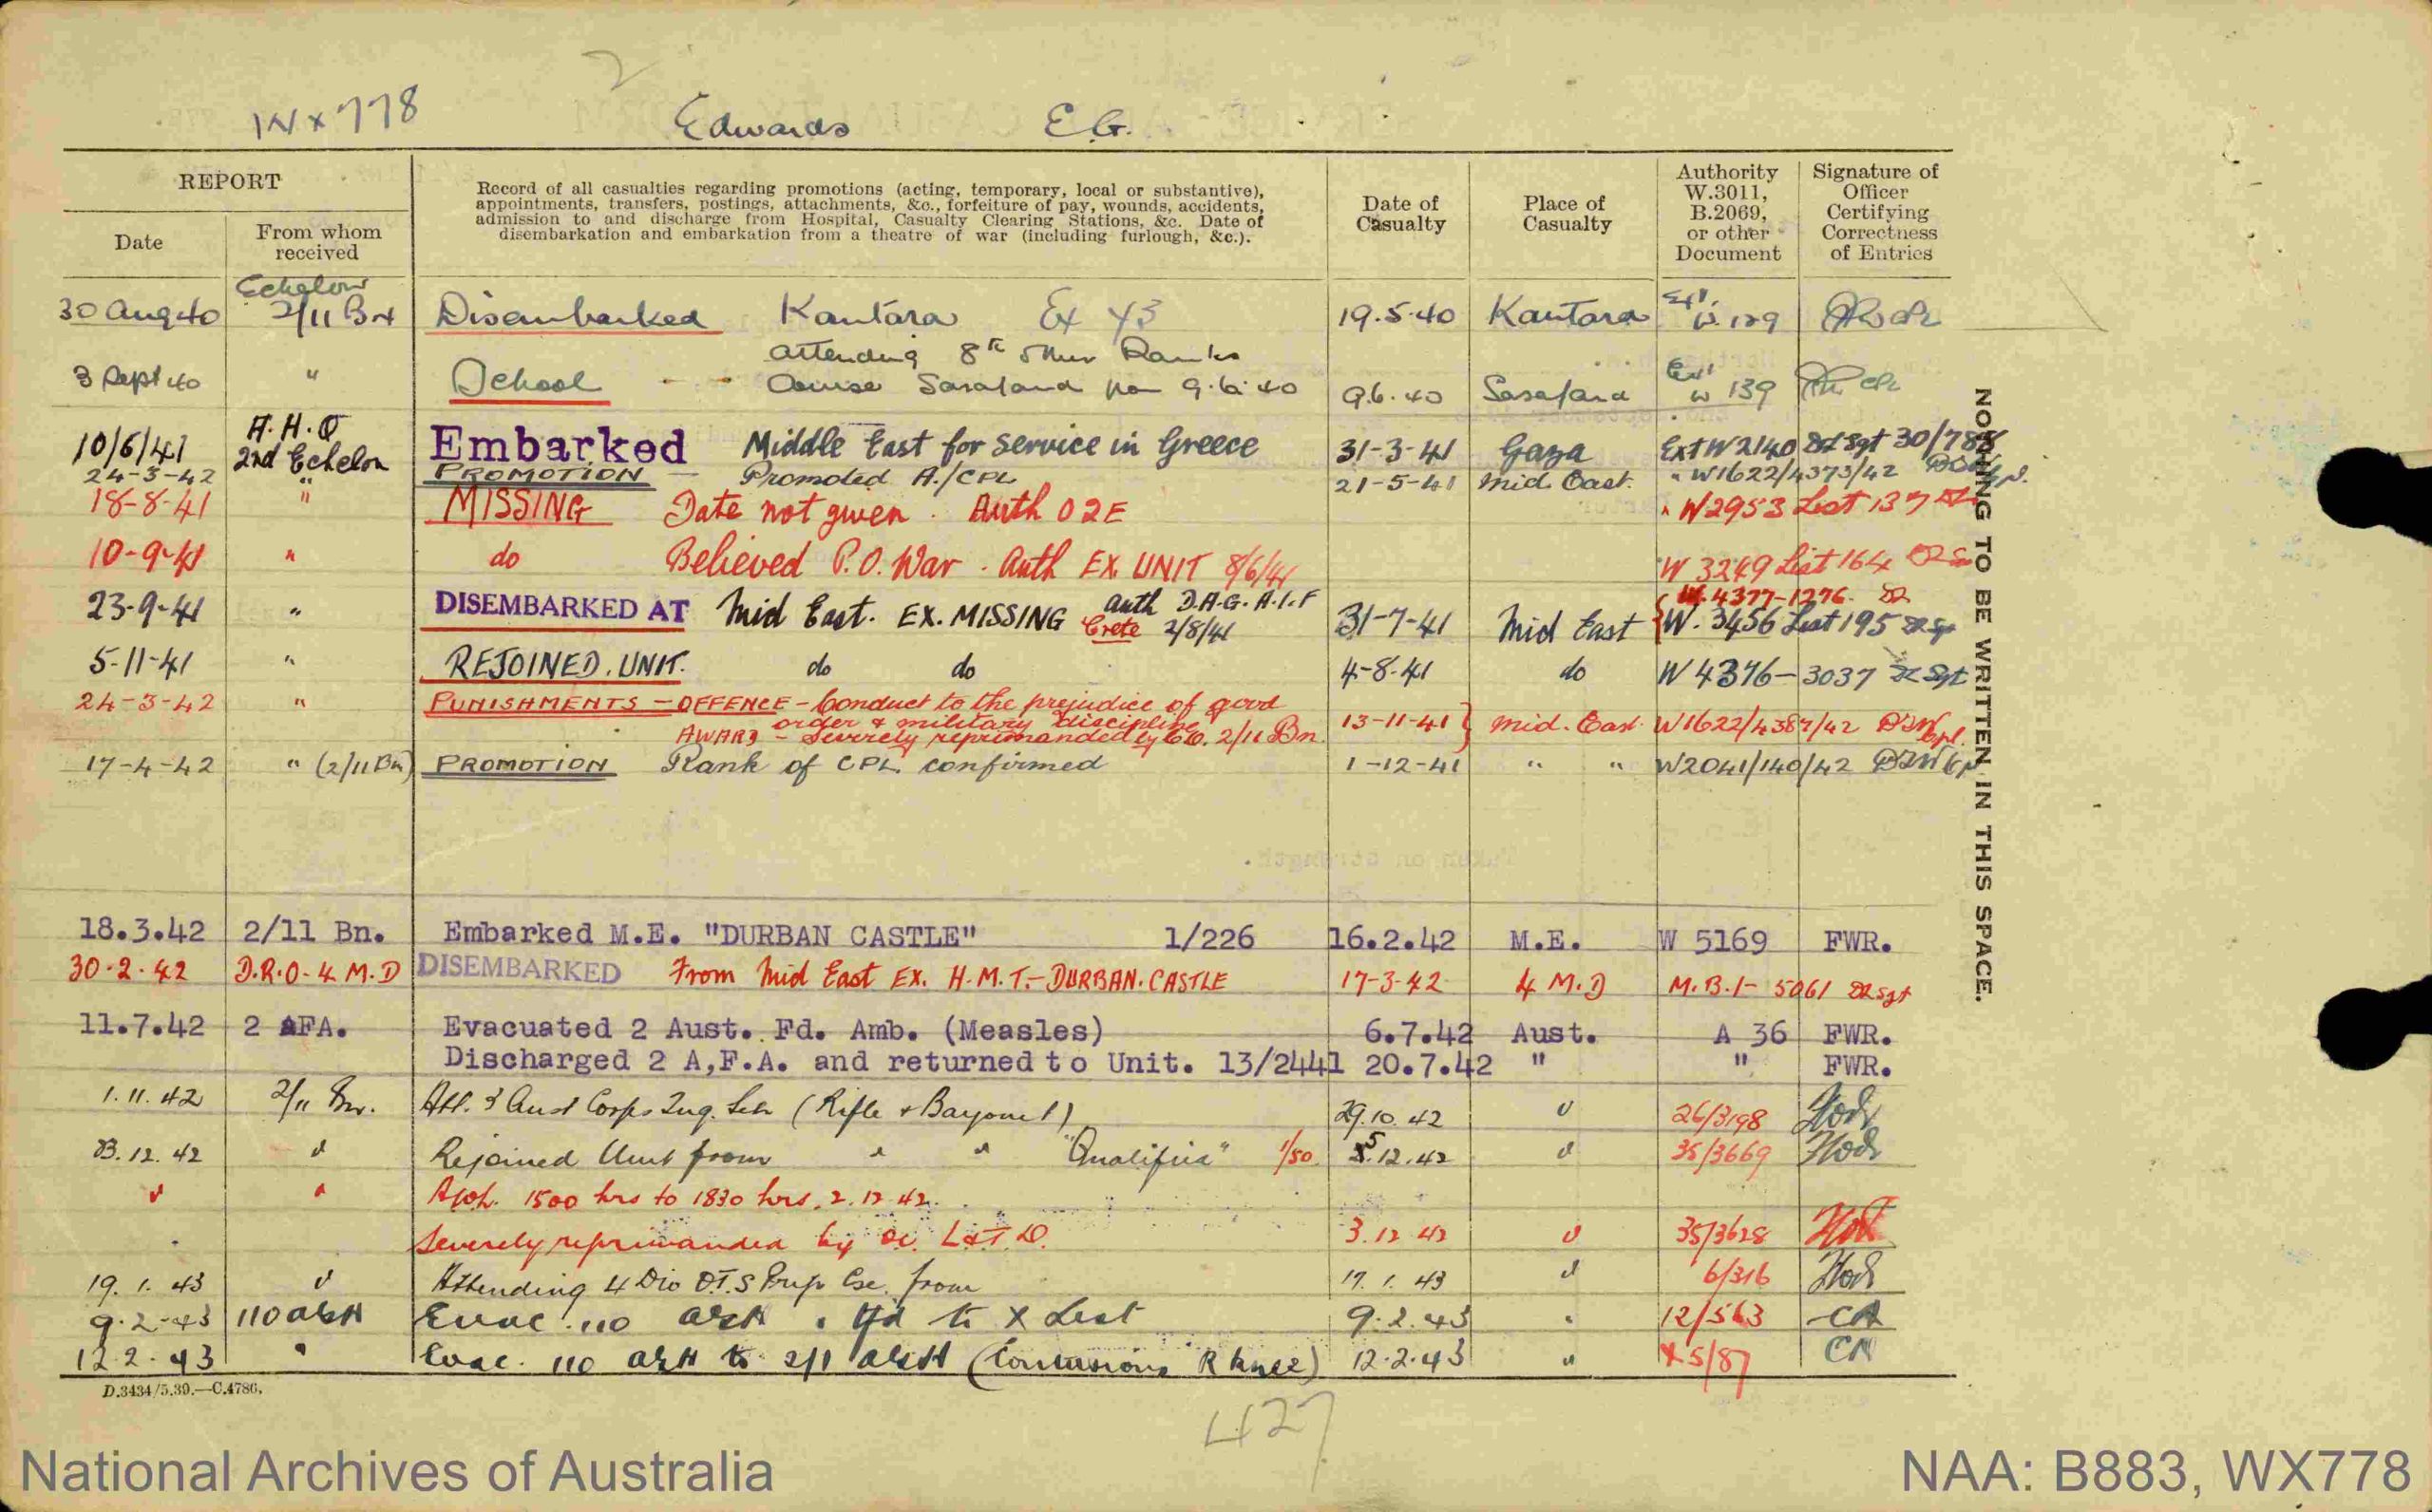 WX778 Edwards E G.
REPORT
Date
From whom received
Record of all casualties regarding promotions (acting, temporary, local or substantive),
appointments, transfers, postings, attachments, &c., forfeiture of pay, wounds, accidents,
admission to and discharge from Hospital, Casualty Clearing Stations, &c. Date of
disembarkation and embarkation from a theatre of war (including furlough, &c.).
Date of Casualty
Place of Casualty
Authority W.3011, B.2069, or other Document
Signature of Officer Certifying Correctness of Entries
Echelon
30 Aug 40 2/11 Bn Disembarked Kantara Ex Y3 19.5.40 Kantara W.129
attending 8th other Ranks
3 Sept 40 " School Course Sarafand from 9.6.40 9.6.40 Sarafand W 139
A.H.Q
10/6/41 2nd Echelon Embarked Middle East for service in Greece 31-3-41 Gaza Ext W2140 Sgt 30/788
24-3-42 " PROMOTION — Promoted A./CPL 21-5-41 Mid. East. " W1622/4373/42
18-8-41 " MISSING Date not given. Auth O2E " W2953 List 137
10-9-41 " do Believed P.O. War. Auth EX UNIT 8/6/41 W 3249 List 164
W. 4377-1276.
23-9-41 " DISEMBARKED AT Mid East. EX. MISSING Crete auth D.A.G. A.I.F 2/8/41 31-7-41 Mid East W. 3456 List 195
5-11-41 " REJOINED. UNIT. do do 4-8-41 do W 4376-3037 Sgt
24-3-42 " PUNISHMENTS — OFFENCE - Conduct to the prejudice of good
order & military discipline 13-11-41 Mid. East. W1622/4387/42
AWARD - Severely reprimanded by C.O. 2/11 Bn.
17-4-42 " (2/11 Bn) PROMOTION Rank of CPL confirmed 1-12-41 " " W2041/140/42
18.3.42 2/11 Bn. Embarked M.E. "DURBAN CASTLE" 1/226 16.2.42 M.E. W 5169 FWR.
30-2-42 D.R.O-4 M.D DISEMBARKED From Mid East EX. H.M.T.- DURBAN. CASTLE 17-3-42 4 M.D M.B.1- 5061 Sgt
11.7.42 2 AFA. Evacuated 2 Aust. Fd. Amb. (Measles) 6.7.42 Aust. A 36 FWR.
Discharged 2 A,F.A. and returned to Unit. 13/2441 20.7.42 " " FWR.
1.11.42 2/11 Bn. Att. 3 Aust Corps Trg. Sch (Rifle & Bayonet) 29.10.42 " 26/3198
13.12.42 " Rejoined Unit from " " "Qualified" 1/50 5.12.42 " 35/3669
" " 1500 hrs to 1830 hrs, 2.12.42.
Severely reprimanded by OC. 3.12.42 " 35/3628
19.1.43 " Attending 4 Div O.T.S Prep Cse. from 17.1.43 " 6/316
9.2.43 110 AGH Evac. 110 AGH. tfd to X List 9.2.43 " 12/563 CA
12.2.43 " Evac. 110 AGH to 2/1 AGH (Contusions R knee) 12.2.43 " X5/87 CA
D.3434/5.39.—C.4786.
427
NOTHING TO BE WRITTEN IN THIS SPACE.
National Archives of Australia
NAA: B883, WX778